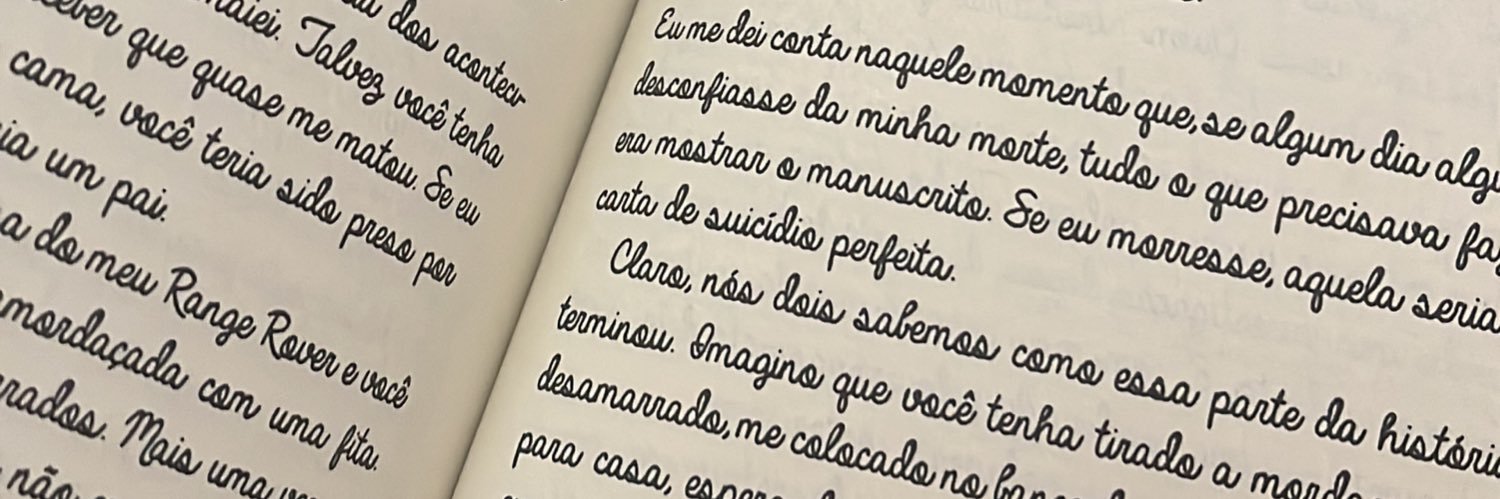 dos acontecir
maiei. Talvez você tenha
que quase me matou. Se eu
cama, você teria sido preso por
um pai.
do meu Range Rover e você
com uma fita.
Mais uma
não
Eu me dei conta naquele momento que, se algum dia
desconfiasse da minha morte, tudo o que precisava
era mostrar o manuscrito. Se eu morresse, aquela seria
carta de suicídio perfeita.
Claro, nós dois sabemos como essa parte da
terminou. Imagino que você tenha tirado a
desamarrado, me colocado no
para casa,